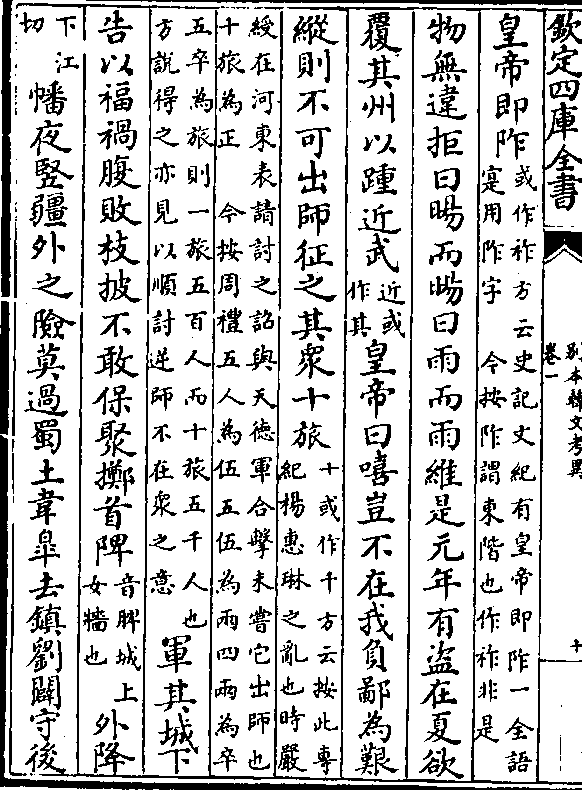 欽定四庫全書
別本韓文考異
卷一
十
皇帝即阼或作祚方云史記文紀有皇帝即阼一全語
寔用阼字 今按阼謂東階也作祚非是
物無違拒曰暘而暘曰雨而雨維是元年有盜在夏欲
覆其州以踵近武近或作其皇帝曰嘻豈不在我負鄙為艱
縱則不可出師征之其衆十旅十或作千方云按此專
紀楊惠琳之亂也時嚴
綬在河東表請討之詔與天德軍合擊未嘗它出師也
十旅為正 今按周禮五人為伍五伍為兩四兩為卒
五卒為旅則一旅五百人而十旅五千人也
方說得之亦見以順討逆師不在衆之意軍其城下
告以福禍腹敗枝披不敢保聚擲首陴音脾城上女牆也外降
下江切幡夜豎疆外之險莫過蜀土韋臯去鎮劉闢守後